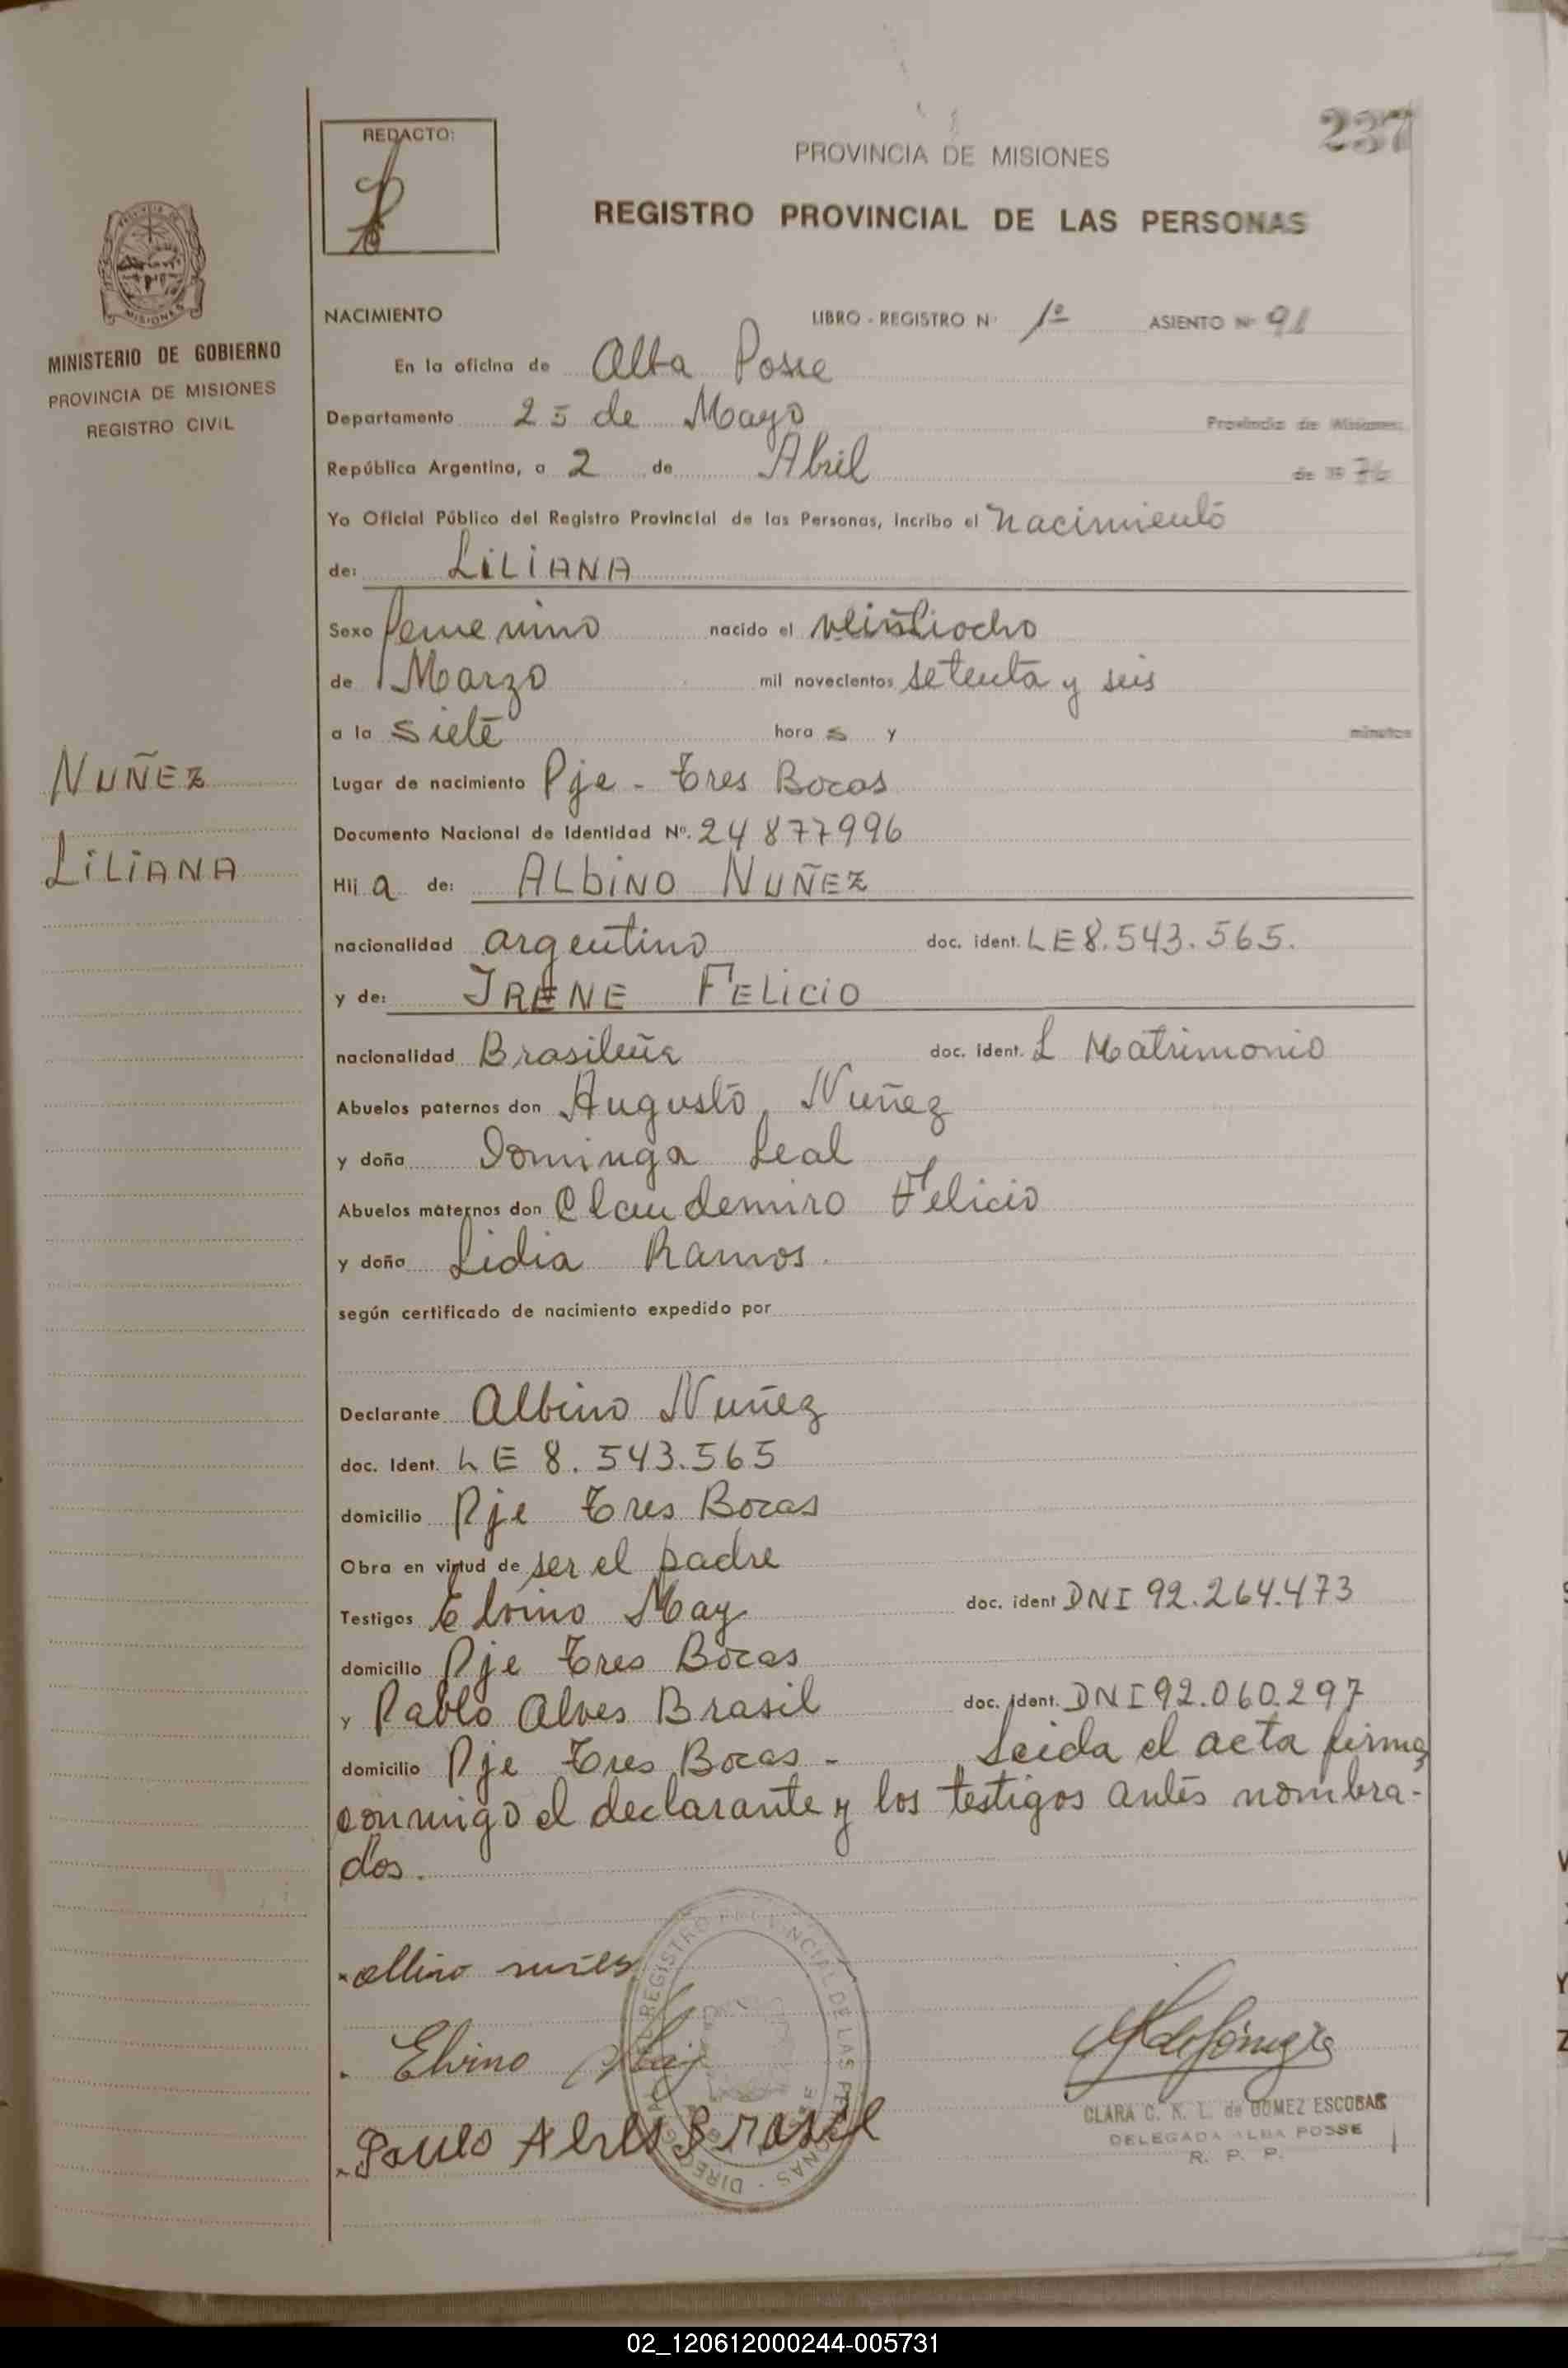 237
REDACTO:
PROVINCIA DE MISIONES
REGISTRO PROVINCIAL DE LAS PERSONAS
MISIONES
MINISTERIO DE GOBIERNO
PROVINCIA DE MISIONES
REGISTRO CIVIL
NUÑEZ
LILIANA
NACIMIENTO LIBRO - REGISTRO Nº 1º ASIENTO Nº 91
En la oficina de Alba Posse
Departamento 25 de Mayo Provincia de Misiones
República Argentina, a 2 de Abril de 1976
Yo Oficial Público del Registro Provincial de las Personas, incribo el nacimiento
de: LILIANA
Sexo femenino nacido el veintiocho
de Marzo mil novecientos setenta y seis
a la siete hora s y minutos
Lugar de nacimiento Pje - Tres Bocas
Documento Nacional de Identidad Nº. 24877996
Hij a de: ALBINO NUÑEZ
nacionalidad argentino doc. ident. LE 8.543.565.
y de: IRENE FELICIO
nacionalidad Brasileña doc. ident. L Matrimonio
Abuelos paternos don Augusto Nuñez
y doña Dominga Leal
Abuelos maternos don Claudemiro Felicio
y doña Lidia Ramos.
según certificado de nacimiento expedido por
Declarante Albino Nuñez
doc. Ident. LE 8.543.565
domicilio Pje Tres Bocas
Obra en virtud de ser el padre
Testigos Elvino May doc. ident DNI 92.264.473
domicilio Pje Tres Bocas
y Pablo Alves Brasil doc. ident. DNI 92.060.297
domicilio Pje Tres Bocas - Leida el acta firma
conmigo el declarante y los testigos antes nombra-
dos.
Elvino May
Paulo Alves Brasil
CLARA C. K. L. de GOMEZ ESCOBAR
DELEGADA ALBA POSSE
R. P. P.
02_120612000244-005731